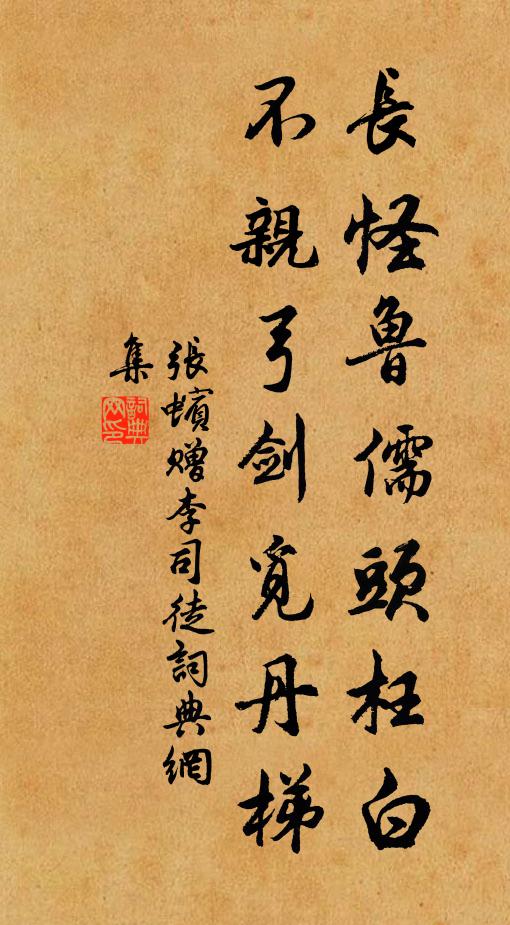 長怪魯儒頭枉白
不親弓劍覓丹梯
張蠙贈李司徒詞典網
集
詞典
网印